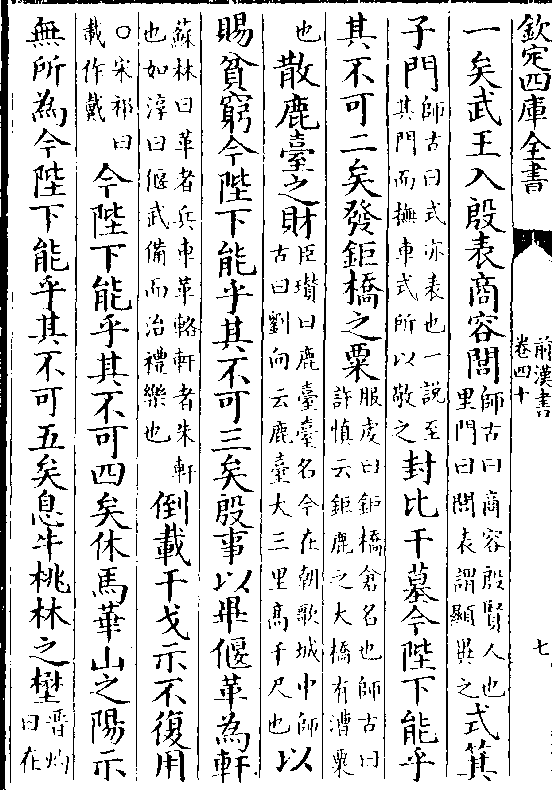 欽定四庫全書
前漢書
卷四十
七
一矣武王入殷表商容閭師古曰商容殷賢人也
里門曰閭表謂顯異之式箕
子門師古曰式亦表也一說至
其門而撫車式所以敬之封比干墓今陛下能乎
其不可二矣發鉅橋之粟服虔曰鉅橋倉名也師古曰
許慎云鉅鹿之大橋有漕粟
也散鹿臺之財臣瓚曰鹿臺臺名今在朝歌城中師
古曰劉向云鹿臺大三里高千尺也以
賜貧窮今陛下能乎其不可三矣殷事以畢偃革為軒
蘇林曰革者兵車革輅軒者朱軒
也如淳曰偃武備而治禮樂也倒載干戈示不復用
○宋祁曰
載作戴今陛下能乎其不可四矣休馬華山之陽示
無所為今陛下能乎其不可五矣息牛桃林之壄晉灼
曰在